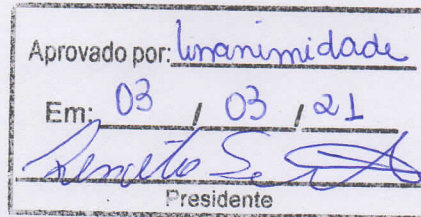 Aprovado por: Unanimidade
Em: 03 / 03 / 21
Presidente